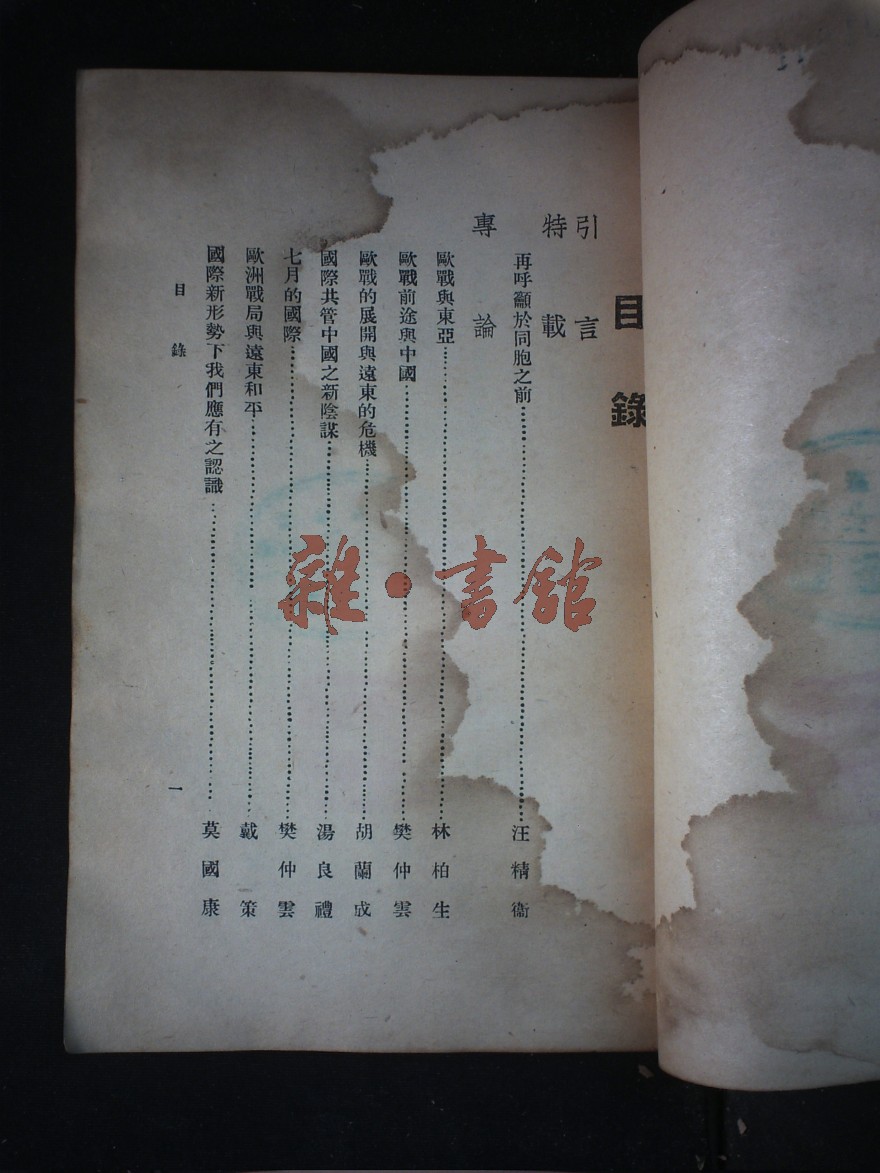 目錄
引言
特載
再呼籲於同胞之前……汪精衞
專論
歐戰與東亞……林柏生
歐戰前途與中國……樊仲雲
歐戰的展開與遠東的危機……胡蘭成
國際共管中國之新陰謀……湯良禮
七月的國際……樊仲雲
歐洲戰局與遠東和平……戴策
國際新形勢下我們應有之認識……莫國康
目錄 一
雜·書館